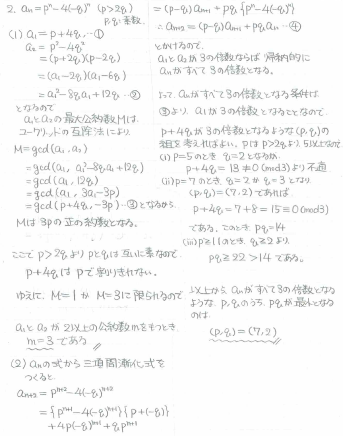 2. aₙ = pⁿ - 4(-q)ⁿ (p > 2q)
p, q: 素数.
(1) a₁ = p + 4q, …①
a₂ = p² - 4q²
= (p+2q)(p-2q)
= (a₁-2q)(a₁-6q)
= a₁² - 8q a₁ + 12q² …②
となるので
a₁とa₂の最大公約数Mは、
ユークリッドの互除法により
M = gcd(a₁, a₂)
= gcd(a₁, a₁²-8q a₁+12q²)
= gcd(a₁, 12q²)
= gcd(a₁, 3a₁-3p)
= gcd(p+4q, -3p) …③ となるから
Mは3pの正の約数となる。
ここで p > 2q より pとqは互いに素なので
p+4qは pで割りきれない。
ゆえに M=1か M=3に限られるので
a₁とa₂が2以上の公約数mをもつとき
m=3である
(2) aₙの式から三項間漸化式を
つくると
aₙ₊₂ = pⁿ⁺² - 4(-q)ⁿ⁺²
= {pⁿ⁺¹ - 4(-q)ⁿ⁺¹}{p+(-q)}
+ 4p(-q)ⁿ⁺¹ + q pⁿ⁺¹
= (p-q)aₙ₊₁ + pq{pⁿ - 4(-q)ⁿ}
∴ aₙ₊₂ = (p-q)aₙ₊₁ + pq aₙ …④
とかけるので、
a₁とa₂が3の倍数ならば帰納的に
aₙがすべて3の倍数となる。
よって、aₙがすべて3の倍数となる条件は
③より、a₁が3の倍数となることなので
p+4qが3の倍数となるような(p, q)の
組を考えればよい。pはp>2qより、5以上なので
(i) p=5のとき q=2となるが、
p+4q = 13 ≢ 0 (mod3)より不適
(ii) p=7のとき、q=2か q=3となり
(p, q) = (7, 2)であれば
p+4q = 7+8 = 15 ≡ 0 (mod3)
である。このとき pq=14
(iii) p≧11のとき、q≧2より、
pq ≧ 22 > 14である。
以上から、aₙがすべて3の倍数となる
ような p, qのうち、pqが最小となる
のは、
(p, q) = (7, 2)